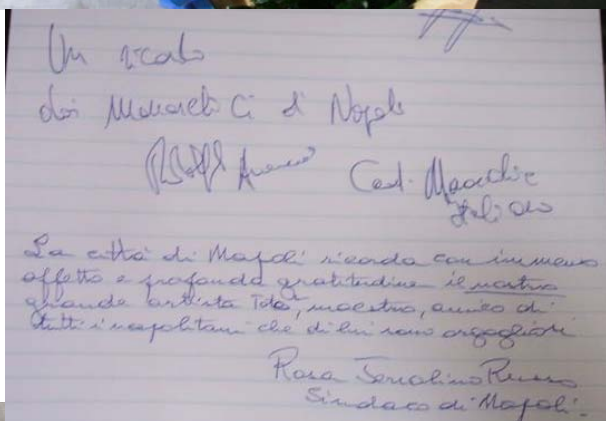 Un ricordo
dei Monarchici di Napoli
Cav.
La città di Napoli ricorda con immenso
affetto e profonda gratitudine il nostro
grande artista Totò, maestro, amico di
tutti i napoletani che di lui sono orgogliosi
Rosa Iervolino Russo
Sindaco di Napoli.